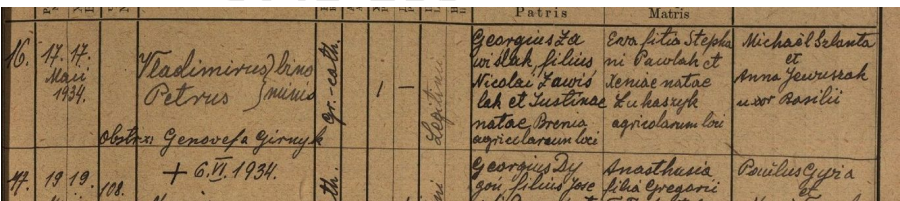 Patris Matris
16. 17. 17.
Maii
1934.
Vladimirus) bino
Petrus ) mimo
Obstrx: Genovefa Girnyk
gr.-cath.
1 —
Legitimi
Georgius Za
wislak, filius
Nicolai Zawis
lak et Justinae
natae Brenia
agricolarum loci
Ewa filia Stepha
ni Pawlak et
Xeniae natae
Lukaszyk
agricolarum loci
Michaël Szlanta
et
Anna Jewuszak
uxor Basilii
17. 19 19.
108.
+ 6.VI. 1934.
th.
ni
Georgius Dy
goń, filius Jose
Anasthasia
filia Gregorii
Paulus Gyia
et